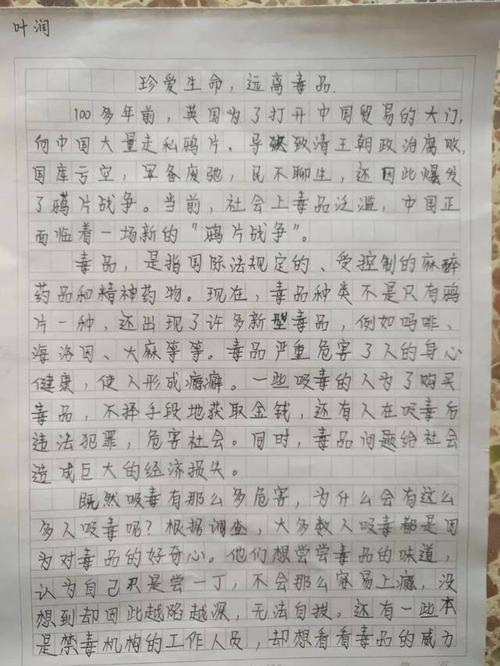 叶润
珍爱生命,远离毒品.
100多年前,英国为了打开中国贸易的大门,
向中国大量走私鸦片、导致清王朝政治腐败,
国库亏空,军备废弛,民不聊生,还因此爆发
了鸦片战争。当前,社会上毒品泛滥,中国正
面临着一场新的“鸦片战争”。
毒品,是指国际法规定的、受控制的麻醉
药品和精神药物。现在,毒品种类不是只有鸦
片一种,还出现了许多新型毒品,例如吗啡、
海洛因、大麻等等。毒品严重危害了人的身心
健康,使人形成瘾癖。一些吸毒的人为了购买
毒品,不择手段地获取金钱,还有人在吸毒后
违法犯罪,危害社会。同时,毒品问题给社会
造成巨大的经济损失。
既然吸毒有那么多危害,为什么会有这么
多人吸毒呢?根据调查,大多数人吸毒都是因
为对毒品的好奇心。他们想尝尝毒品的味道,
认为自己只是尝一丁,不会那么容易上瘾,没
想到却因此越陷越深,无法自拔。还有一些本
是禁毒机构的工作人员,却想看看毒品的威力